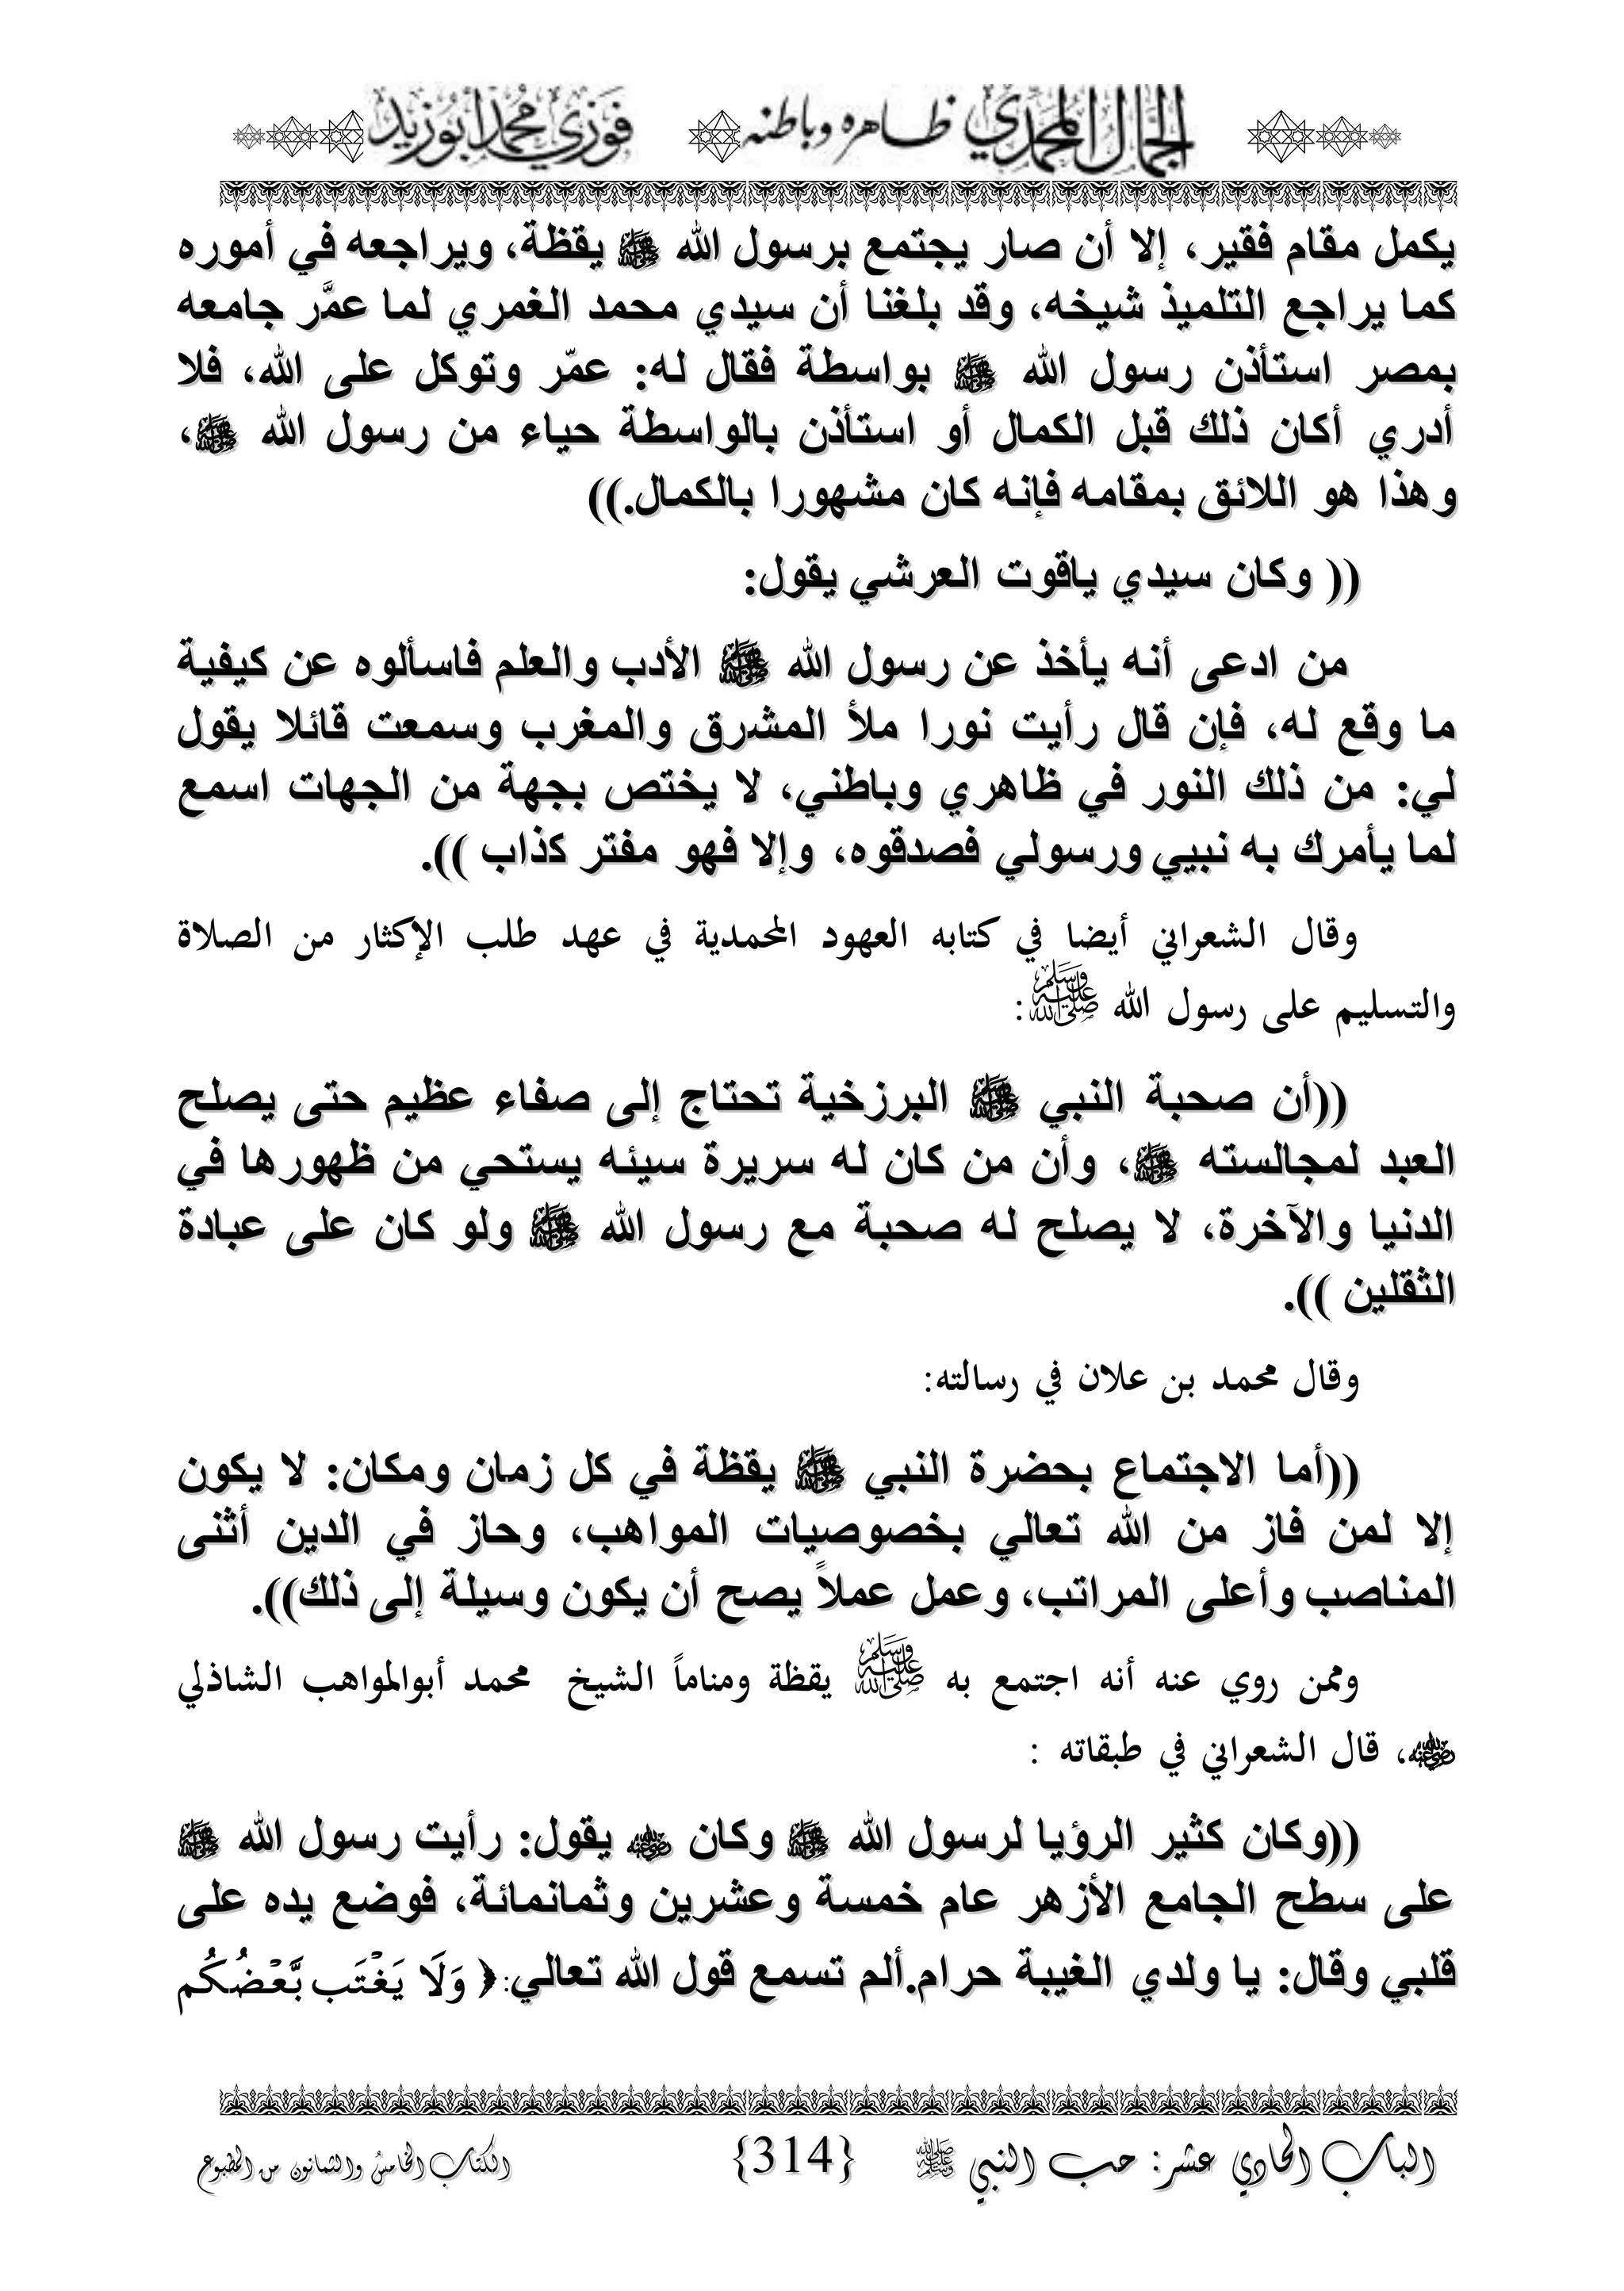 الجمال المحمدي ظاهره وباطنه فوزي محمد أبوزيد
يكمل مقام فقير، إلا أن صار يجتمع برسول الله ﷺ يقظة، ويراجعه في أموره
كما يراجع التلميذ شيخه، وقد بلغنا أن سيدي محمد الغمري لما عمَّر جامعه
بمصر استأذن رسول الله ﷺ بواسطة فقال له: عمّر وتوكل على الله، فلا
أدري أكان ذلك قبل الكمال أو استأذن بالواسطة حياء من رسول الله ﷺ،
وهذا هو اللائق بمقامه فإنه كان مشهورا بالكمال.))
(( وكان سيدي ياقوت العرشي يقول:
من ادعى أنه يأخذ عن رسول الله ﷺ الأدب والعلم فاسألوه عن كيفية
ما وقع له، فإن قال رأيت نورا ملأ المشرق والمغرب وسمعت قائلا يقول
لي: من ذلك النور في ظاهري وباطني، لا يختص بجهة من الجهات اسمع
لما يأمرك به نبيي ورسولي فصدقوه، وإلا فهو مفتر كذاب )).
وقال الشعراني أيضا في كتابه العهود المحمدية في عهد طلب الإكثار من الصلاة
والتسليم على رسول الله ﷺ:
((أن صحبة النبي ﷺ البرزخية تحتاج إلى صفاء عظيم حتى يصلح
العبد لمجالسته ﷺ، وأن من كان له سريرة سيئه يستحي من ظهورها في
الدنيا والآخرة، لا يصلح له صحبة مع رسول الله ﷺ ولو كان على عبادة
الثقلين )).
وقال محمد بن علان في رسالته:
((أما الاجتماع بحضرة النبي ﷺ يقظة في كل زمان ومكان: لا يكون
إلا لمن فاز من الله تعالي بخصوصيات المواهب، وحاز في الدين أثنى
المناصب وأعلى المراتب، وعمل عملاً يصح أن يكون وسيلة إلى ذلك)).
وممن روي عنه أنه اجتمع به ﷺ يقظة ومناماً الشيخ محمد أبوالمواهب الشاذلي
رضي الله عنه، قال الشعراني في طبقاته :
((وكان كثير الرؤيا لرسول الله ﷺ وكان رضي الله عنه يقول: رأيت رسول الله ﷺ
على سطح الجامع الأزهر عام خمسة وعشرين وثمانمائة، فوضع يده على
قلبي وقال: يا ولدي الغيبة حرام.ألم تسمع قول الله تعالي: ﴿ وَلَا يَغْتَب بَّعْضُكُم
الباب الحادي عشر: حب النبي ﷺ {314} الكتاب الخامس والثمانون من المطبوع